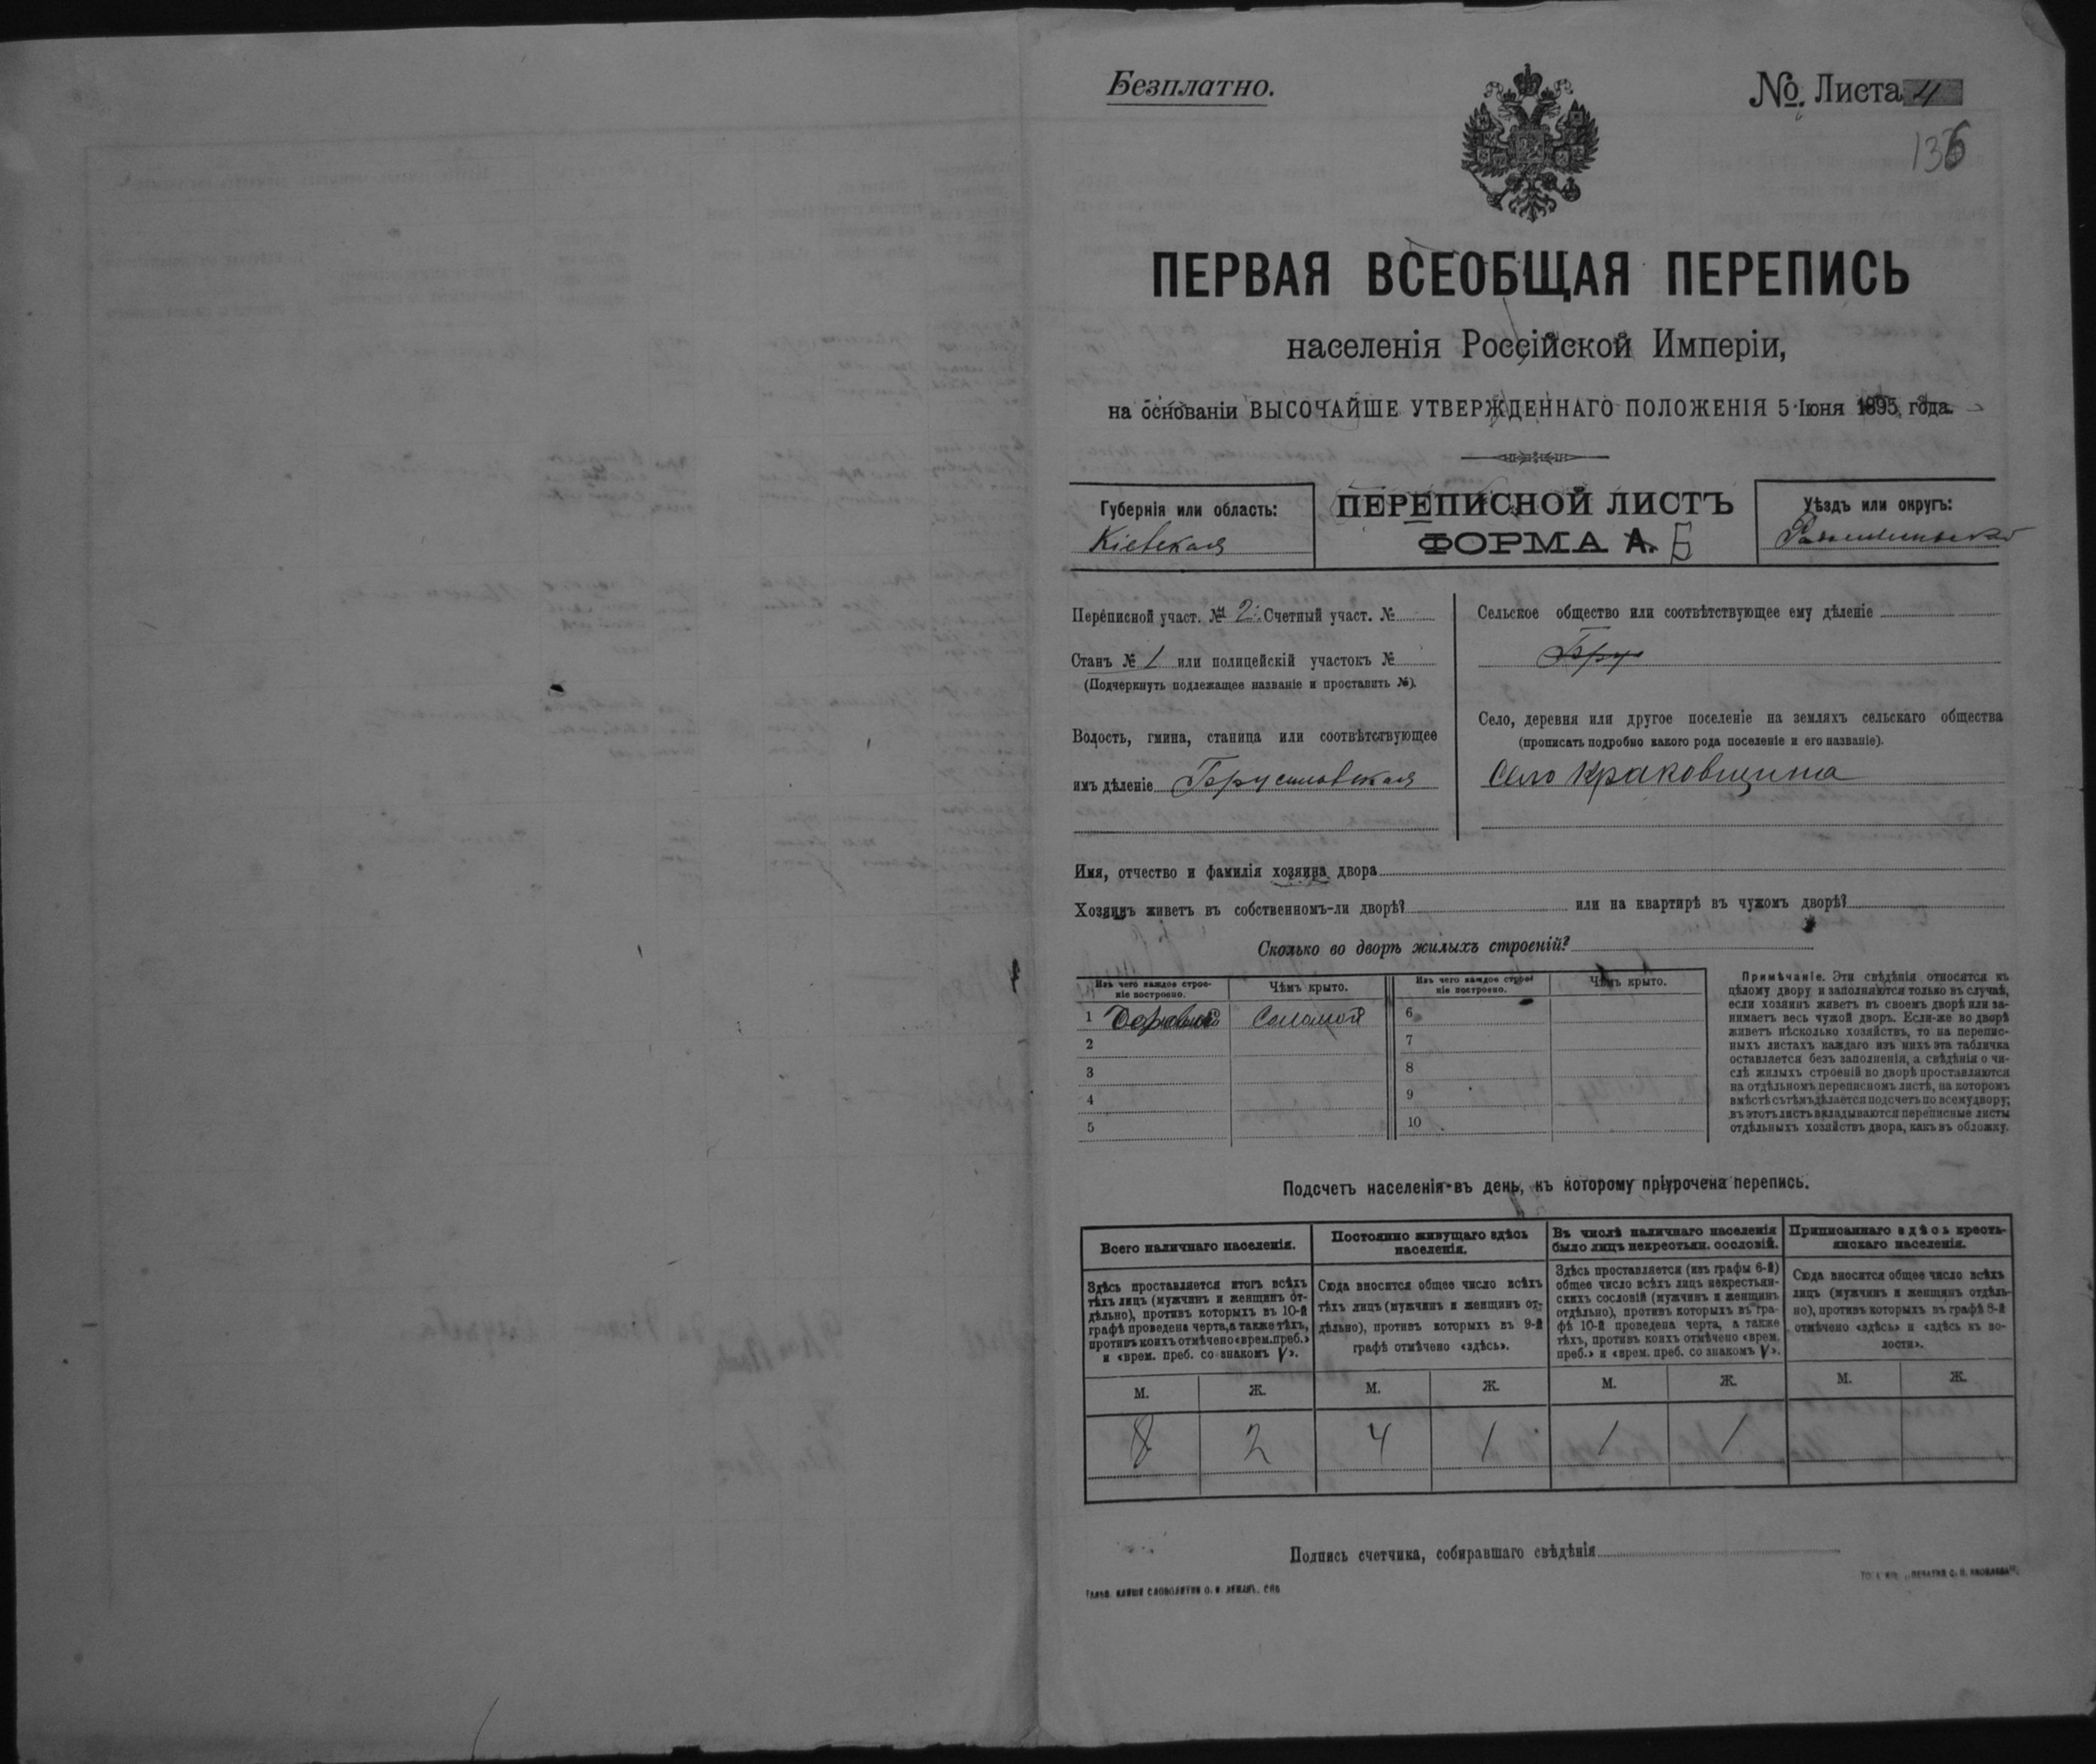 Безплатно.
№ Листа 4
136
ПЕРВАЯ ВСЕОБЩАЯ ПЕРЕПИСЬ
населенія Россійской Имперіи,
на основаніи ВЫСОЧАЙШЕ УТВЕРЖДЕННАГО ПОЛОЖЕНІЯ 5 Іюня 1895 года.
Губернія или область:
Кіевская
ПЕРЕПИСНОЙ ЛИСТЪ
ФОРМА А. Б
Уѣздъ или округъ:
Переписной участ. № 2. Счетный участ. №
Станъ № 1 или полицейскій участокъ №
(Подчеркнуть подлежащее названіе и проставить №).
Волость, гмина, станица или соотвѣтствующее
имъ дѣленіе Брусиловская
Сельское общество или соотвѣтствующее ему дѣленіе
Брус
Село, деревня или другое поселеніе на земляхъ сельскаго общества
(прописать подробно какого рода поселеніе и его названіе).
Село Краковщина
Имя, отчество и фамилія хозяина двора
Хозяинъ живетъ въ собственномъ-ли дворѣ? или на квартирѣ въ чужомъ дворѣ?
Сколько во дворѣ жилыхъ строеній?
Изъ чего каждое строе-
ніе построено.
Чѣмъ крыто.
Изъ чего каждое строе-
ніе построено.
Чѣмъ крыто.
1 Соломой 6
2 7
3 8
4 9
5 10
Примѣчаніе. Эти свѣдѣнія относятся къ
цѣлому двору и заполняются только въ случаѣ,
если хозяинъ живетъ въ своемъ дворѣ или за-
нимаетъ весь чужой дворъ. Если-же во дворѣ
живетъ нѣсколько хозяйствъ, то на перепис-
ныхъ листахъ каждаго изъ нихъ эта табличка
оставляется безъ заполненія, а свѣдѣнія о чи-
слѣ жилыхъ строеній во дворѣ проставляются
на отдѣльномъ переписномъ листѣ, на которомъ
вмѣстѣ съ тѣмъ дѣлается подсчетъ по всему двору;
въ этотъ листъ вкладываются переписные листы
отдѣльныхъ хозяйствъ двора, какъ въ обложку.
Подсчетъ населенія въ день, къ которому пріурочена перепись.
Всего наличнаго населенія.
Здѣсь проставляется итогъ всѣхъ
тѣхъ лицъ (мужчинъ и женщинъ от-
дѣльно), противъ которыхъ въ 10-й
графѣ проведена черта, а также тѣхъ,
противъ коихъ отмѣчено «врем. преб.»
и «врем. преб. со знакомъ V».
Постоянно живущаго здѣсь
населенія.
Сюда вносится общее число всѣхъ
тѣхъ лицъ (мужчинъ и женщинъ от-
дѣльно), противъ которыхъ въ 9-й
графѣ отмѣчено «здѣсь».
Въ числѣ наличнаго населенія
было лицъ некрестьян. сословій.
Здѣсь проставляется (изъ графы 6-й)
общее число всѣхъ лицъ некрестьян-
скихъ сословій (мужчинъ и женщинъ
отдѣльно), противъ которыхъ въ гра-
фѣ 10-й проведена черта, а также
тѣхъ, противъ коихъ отмѣчено «врем.
преб.» и «врем. преб. со знакомъ V».
Приписаннаго здѣсь кресть-
янскаго населенія.
Сюда вносится общее число всѣхъ
лицъ (мужчинъ и женщинъ отдѣль-
но), противъ которыхъ въ графѣ 8-й
отмѣчено «здѣсь» и «здѣсь въ во-
лости».
М. Ж. М. Ж. М. Ж. М. Ж.
8 2 4 1 1 1
Подпись счетчика, собиравшаго свѣдѣнія